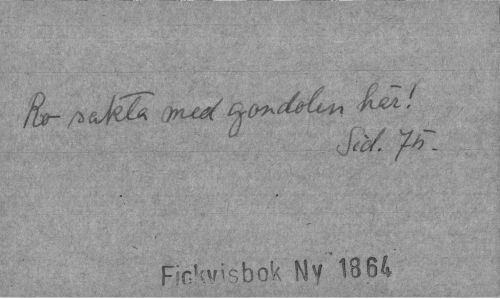 Ro sakta med gondolen här!
Sid. 75.
Fickvisbok Ny 1864